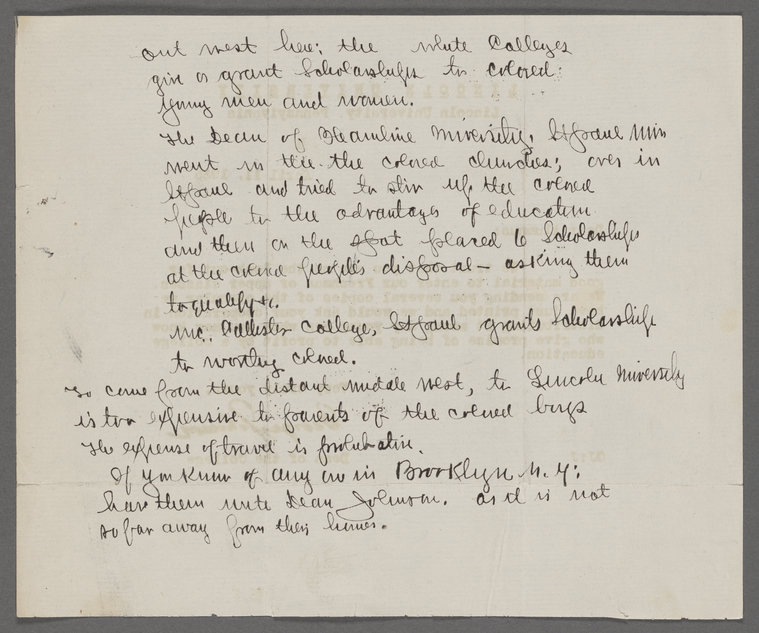 out west here: the white Colleges
give or grant Scholarships to colored:
young men and women.
The Dean of Heamline University, St Paul Min
went in the the colored churches; over in
St Paul and tried to stir up the colored
people to the advantages of education
and then on the spot placed 6 Scholarships
at the colored people's disposal — asking them
to qualify &c.
Mc. Callister College, St Paul grants Scholarships
to worthy colored.
To come from the distant middle west, to Lincoln University
is too expensive to parents of the colored boys
The expense of travel is prohibative.
If you know of any one in Brooklyn N. Y:
have them write Dean Johnson. as it is not
so far away from their homes.